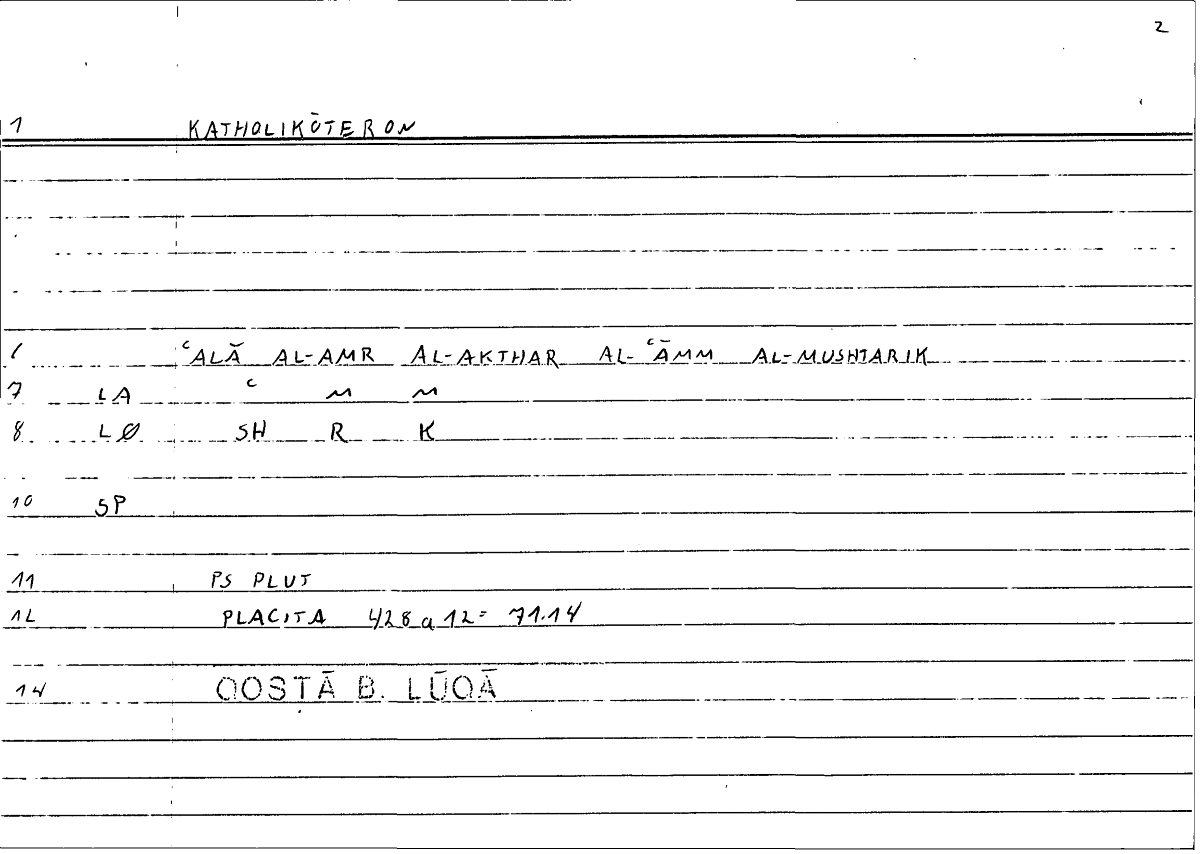 2
1 KATHOLIKŌTERON
6 ʿALĀ AL-AMR AL-AKTHAR AL-ʿĀMM AL-MUSHTARIK
7 LA ʿ M M
8 LØ SH R K
10 SP
11 PS PLUT
12 PLACITA 428a12= 71.14
14 QOSTĀ B. LŪQĀ